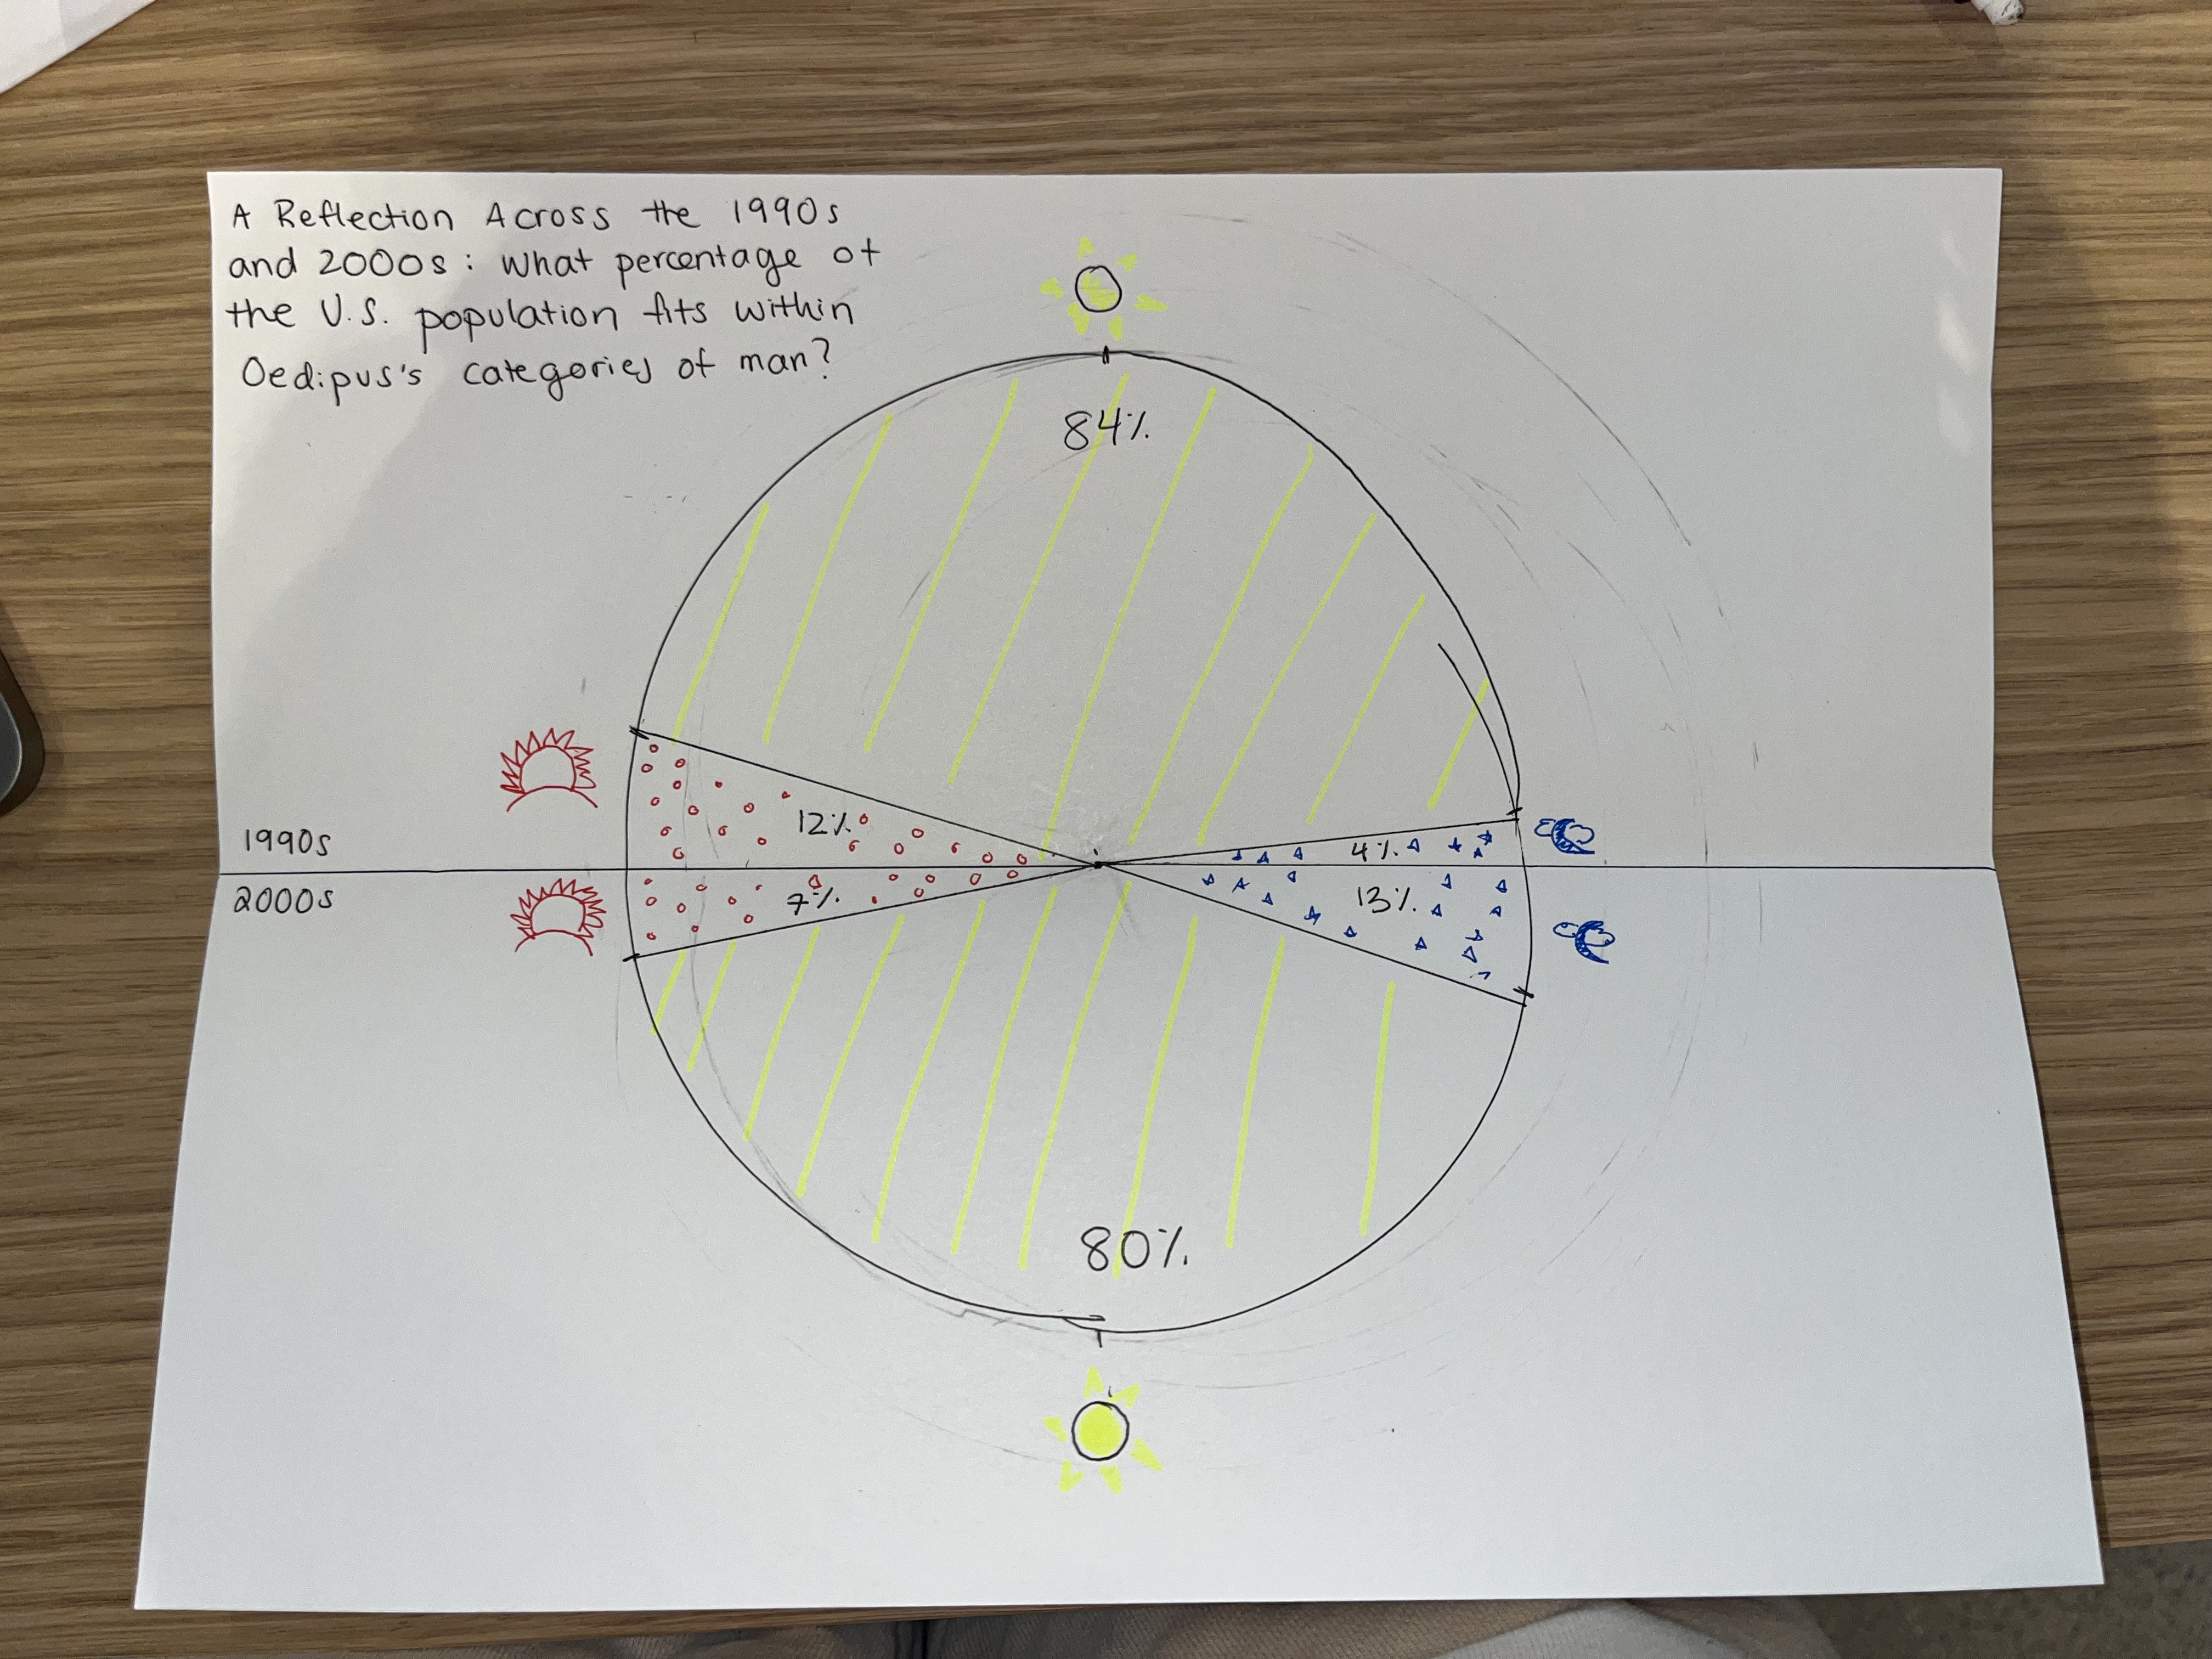 A Reflection Across the 1990s
and 2000s: What percentage of
the U.S. population fits within
Oedipus's categories of man?
84%
12%
4%
1990s
2000s
7%
13%
80%